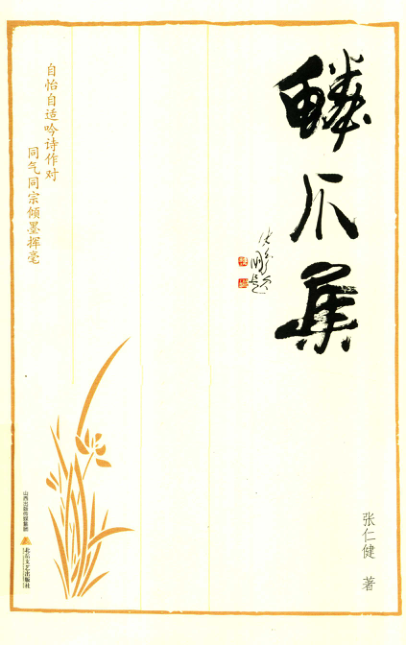 鳞爪集
自怡自适吟诗作对
同气同宗倾墨挥毫
张仁健 著
山西出版传媒集团
北岳文艺出版社